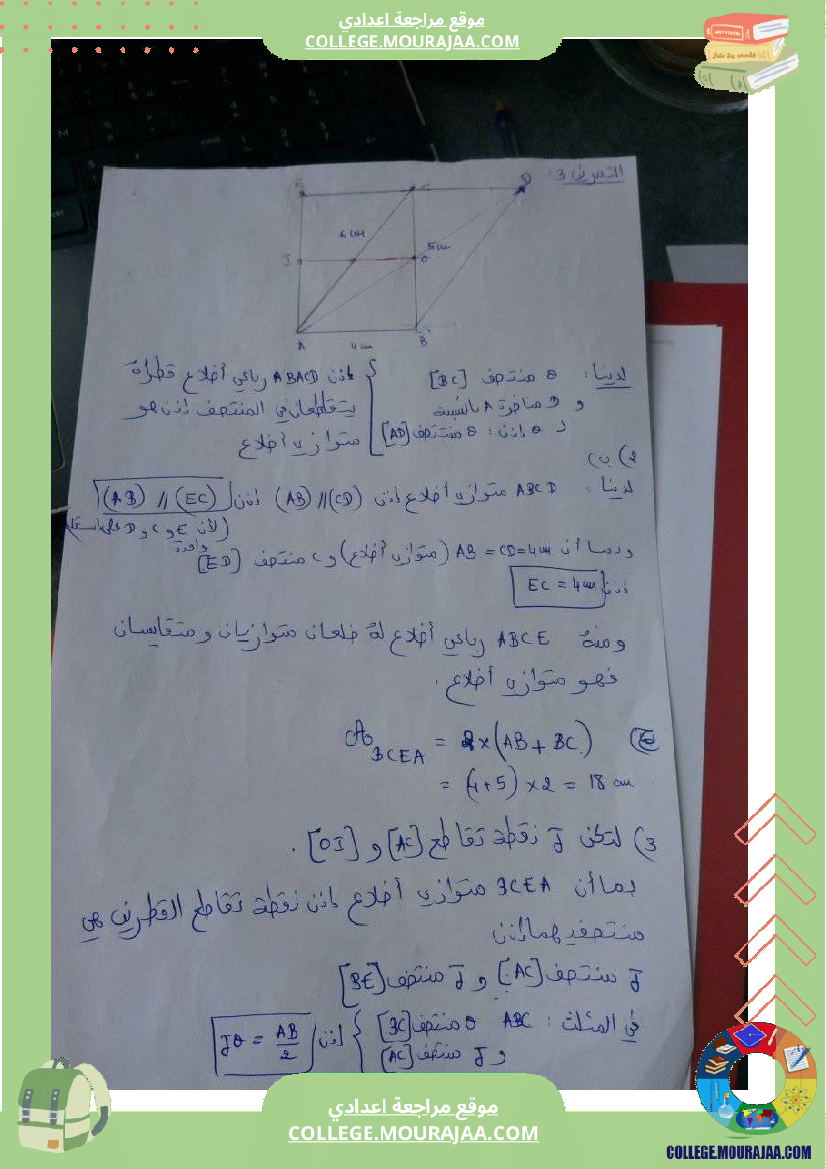 موقع مراجعة اعدادي
COLLEGE.MOURAJAA.COM
التمرين 3:
E C D
6 cm
5 cm
I O
A B
4 cm
لدينا: O منتصف [BC]
و D مماثلة A بالنسبة
لـ O إذن: O منتصف [AD]
إذن ABACD رباعي أضلاع قطراه
يتقاطعان في المنتصف إذن هو
متوازي أضلاع
2) ب)
لدينا: ABCD متوازي أضلاع إذن (AB) // (CD) إذن (AB) // (EC)
(لأن E و C و D على استقامة
واحدة
وبما أن AB = CD = 4cm (متوازي أضلاع) و C منتصف [ED]
إذن EC = 4cm
ومنه ABCE رباعي أضلاع له ضلعان متوازيان ومتقايسان
فهو متوازي أضلاع.
BCEA = 2 x (AB + BC)
= (4+5) x 2 = 18 cm
3) لتكن J نقطة تقاطع [AC] و [OI].
بما أن BCEA متوازي أضلاع إذن نقطة تقاطع القطرين هي
منتصفيهما إذن
J منتصف [AC] و J منتصف [BE]
في المثلث: ABC O منتصف [BC]
و J منتصف [AC]
إذن JO = AB/2
موقع مراجعة اعدادي
COLLEGE.MOURAJAA.COM
COLLEGE.MOURAJAA.COM